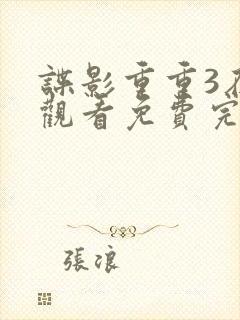 諜影重重3
觀看免費完
張浪